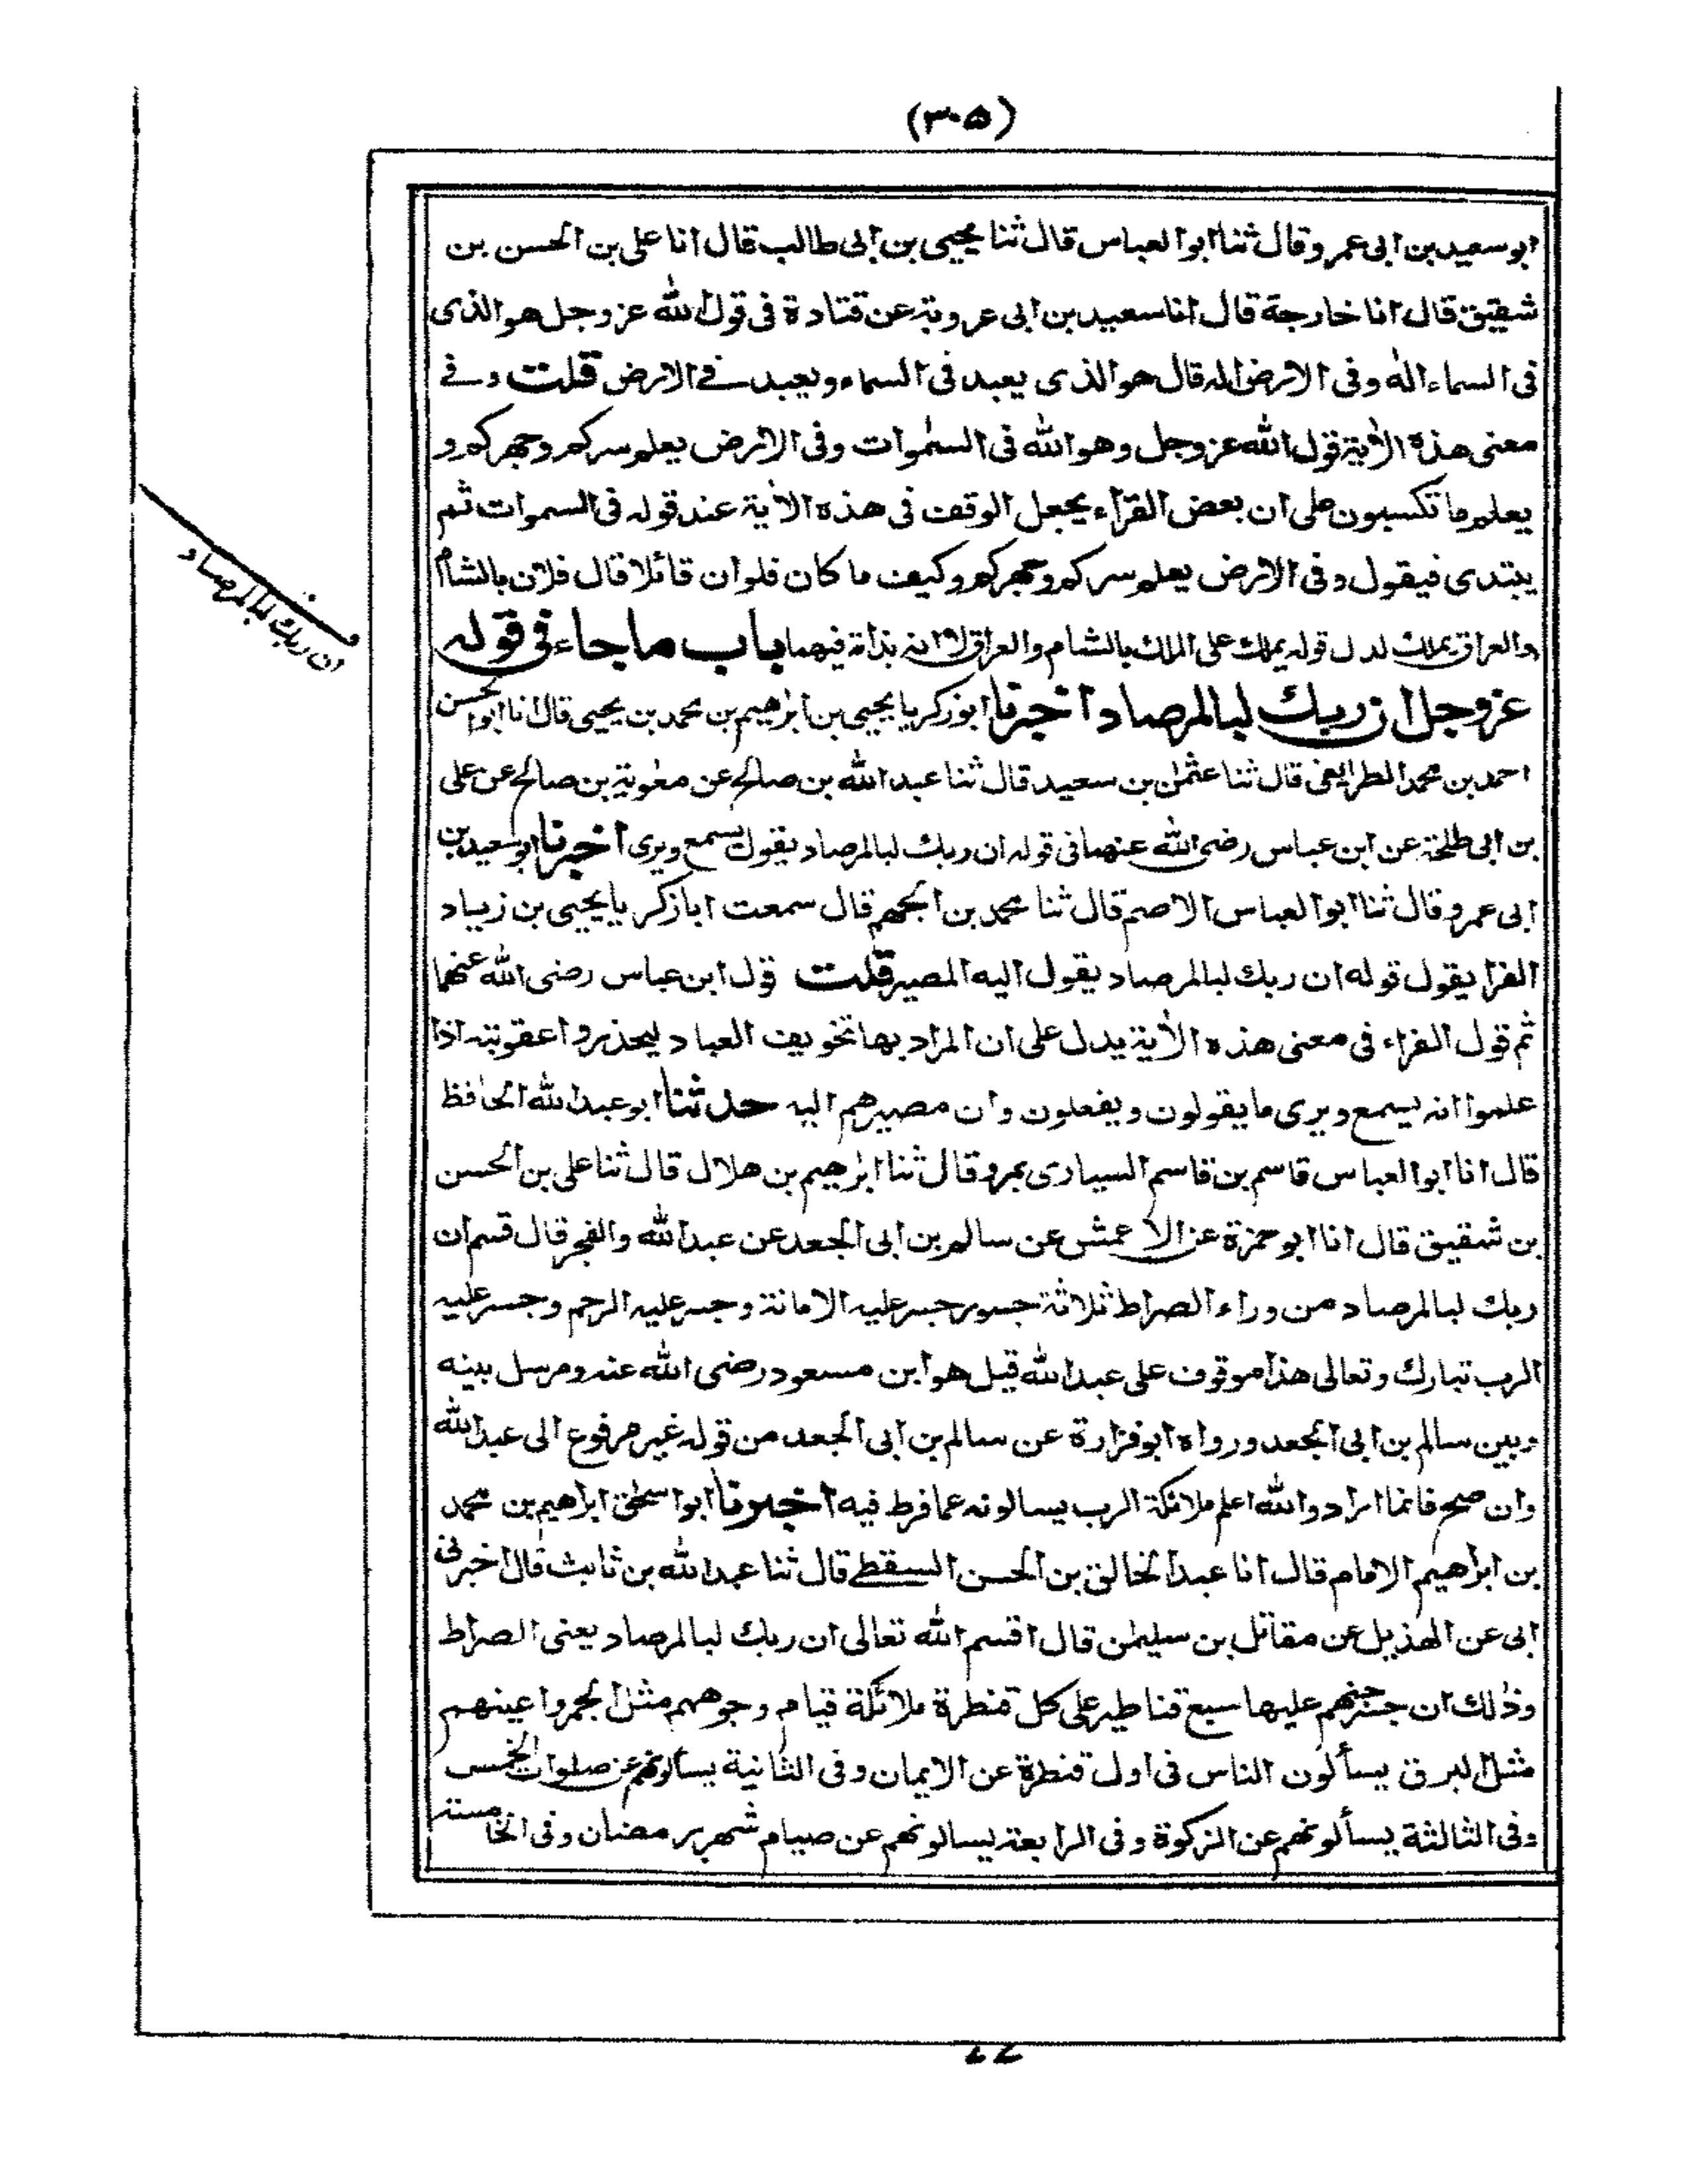 (۳۰۵)
ابو سعيد بن ابى عمرو قال ثنا ابو العباس قال ثنا يحيى بن ابى طالب قال انا على بن الحسن بن
شقيق قال انا خارجة قال انا سعيد بن ابى عروبة عن قتادة فى قول الله عز وجل هو الذى
فى السماء اله وفى الارض اله قال هو الذى يعبد فى السماء ويعبد فے الارض قلت وفے
معنى هذه الأية قول الله عز وجل وهو الله فى السمٰوات وفى الارض يعلم سركم وجهركم و
يعلم ما تكسبون على ان بعض القراء يجعل الوقف فى هذه الأية عند قوله فى السموات ثم
يبتدى فيقول وفى الارض يعلم سركم وجهركم وكيف ما كان فلو ان قائلا قال فلان بالشام
والعراق يملك لدل قوله يملك على الملك بالشام والعراق لا انه بذاته فيهما باب ما جاء فى قوله
عز وجل ان ربك لبالمرصاد اخبرنا ابو زكريا يحيى بن ابرٰهيم بن محمد بن يحيى قال انا ابو الحسن
احمد بن محمد الطرائفى قال ثنا عثمٰن بن سعيد قال ثنا عبد الله بن صالح عن معٰوية بن صالح عن على
بن ابى طلحة عن ابن عباس رضى الله عنهما فى قوله ان ربك لبالمرصاد يقول يسمع ويرى اخبرنا ابو سعيد بن
ابى عمرو قال ثنا ابو العباس الاصم قال ثنا محمد بن الجهم قال سمعت ابا زكريا يحيى بن زياد
الفرا يقول قوله ان ربك لبالمرصاد يقول اليه المصير قلت قول ابن عباس رضى الله عنهما
ثم قول الفراء فى معنى هذه الأية يدل على ان المراد بها تخويف العباد ليحذروا عقوبته اذا
علموا انه يسمع ويرى ما يقولون ويفعلون وان مصيرهم اليه حدثنا ابو عبد الله الحافظ
قال انا ابو العباس قاسم بن قاسم السيارى بمرو قال ثنا ابرٰهيم بن هلال قال ثنا على بن الحسن
بن شقيق قال انا ابو حمزة عن الاعمش عن سالم بن ابى الجعد عن عبد الله والفجر قال قسم ان
ربك لبالمرصاد من وراء الصراط ثلاثة جسور جسر عليه الامانة وجسر عليه الرحم وجسر عليه
الرب تبارك وتعالى هذا موقوف على عبد الله قيل هو ابن مسعود رضى الله عنه ومرسل بينه
وبين سالم بن ابى الجعد ورواه ابو فزارة عن سالم بن ابى الجعد من قوله غير مرفوع الى عبد الله
وان صح فانما اراد والله اعلم ملائكة الرب يسالونه عما فرط فيه اخبرنا ابو اسحٰق ابراهيم بن محمد
بن ابرٰهيم الامام قال انا عبد الخالق بن الحسن السقطے قال ثنا عبد الله بن ثابت قال اخبرنى
ابى عن الهذيل عن مقاتل بن سليمٰن قال اقسم الله تعالى ان ربك لبالمرصاد يعنى الصراط
وذٰلك ان جسر جهنم عليها سبع قناطير على كل قنطرة ملائكة قيام وجوههم مثل الجمر واعينهم
مثل البرق يسألون الناس فى اول قنطرة عن الايمان وفى الثانية يسألونهم عن صلوات الخمس
وفى الثالثة يسألونهم عن الزكوة وفى الرابعة يسالونهم عن صيام شهر رمضان وفى الخامسة
ان ربك لبالمرصاد